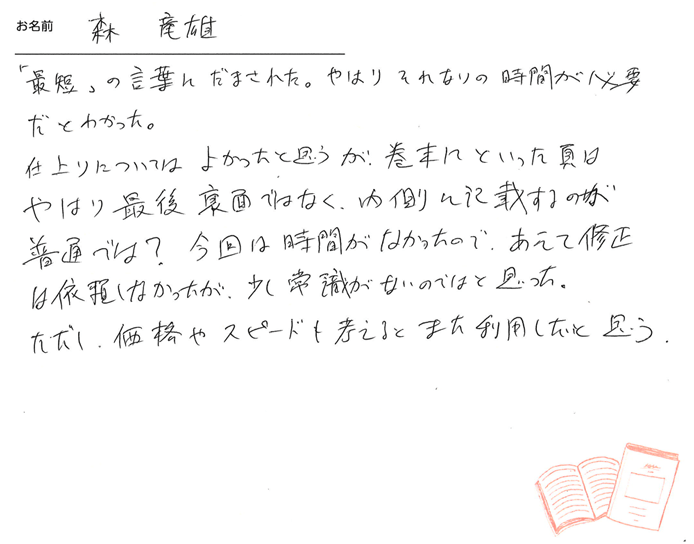 お名前 森 竜雄
「最短」の言葉にだまされた。やはりそれなりの時間が必要
だとわかった。
仕上りについてはよかったと思うが、巻末にといった頁は
やはり最後裏面ではなく、内側に記載するのが
普通では？ 今回は時間がなかったので、あえて修正
は依頼しなかったが、少し常識がないのではと思った。
ただし、価格やスピードも考えるとまた利用したいと思う.